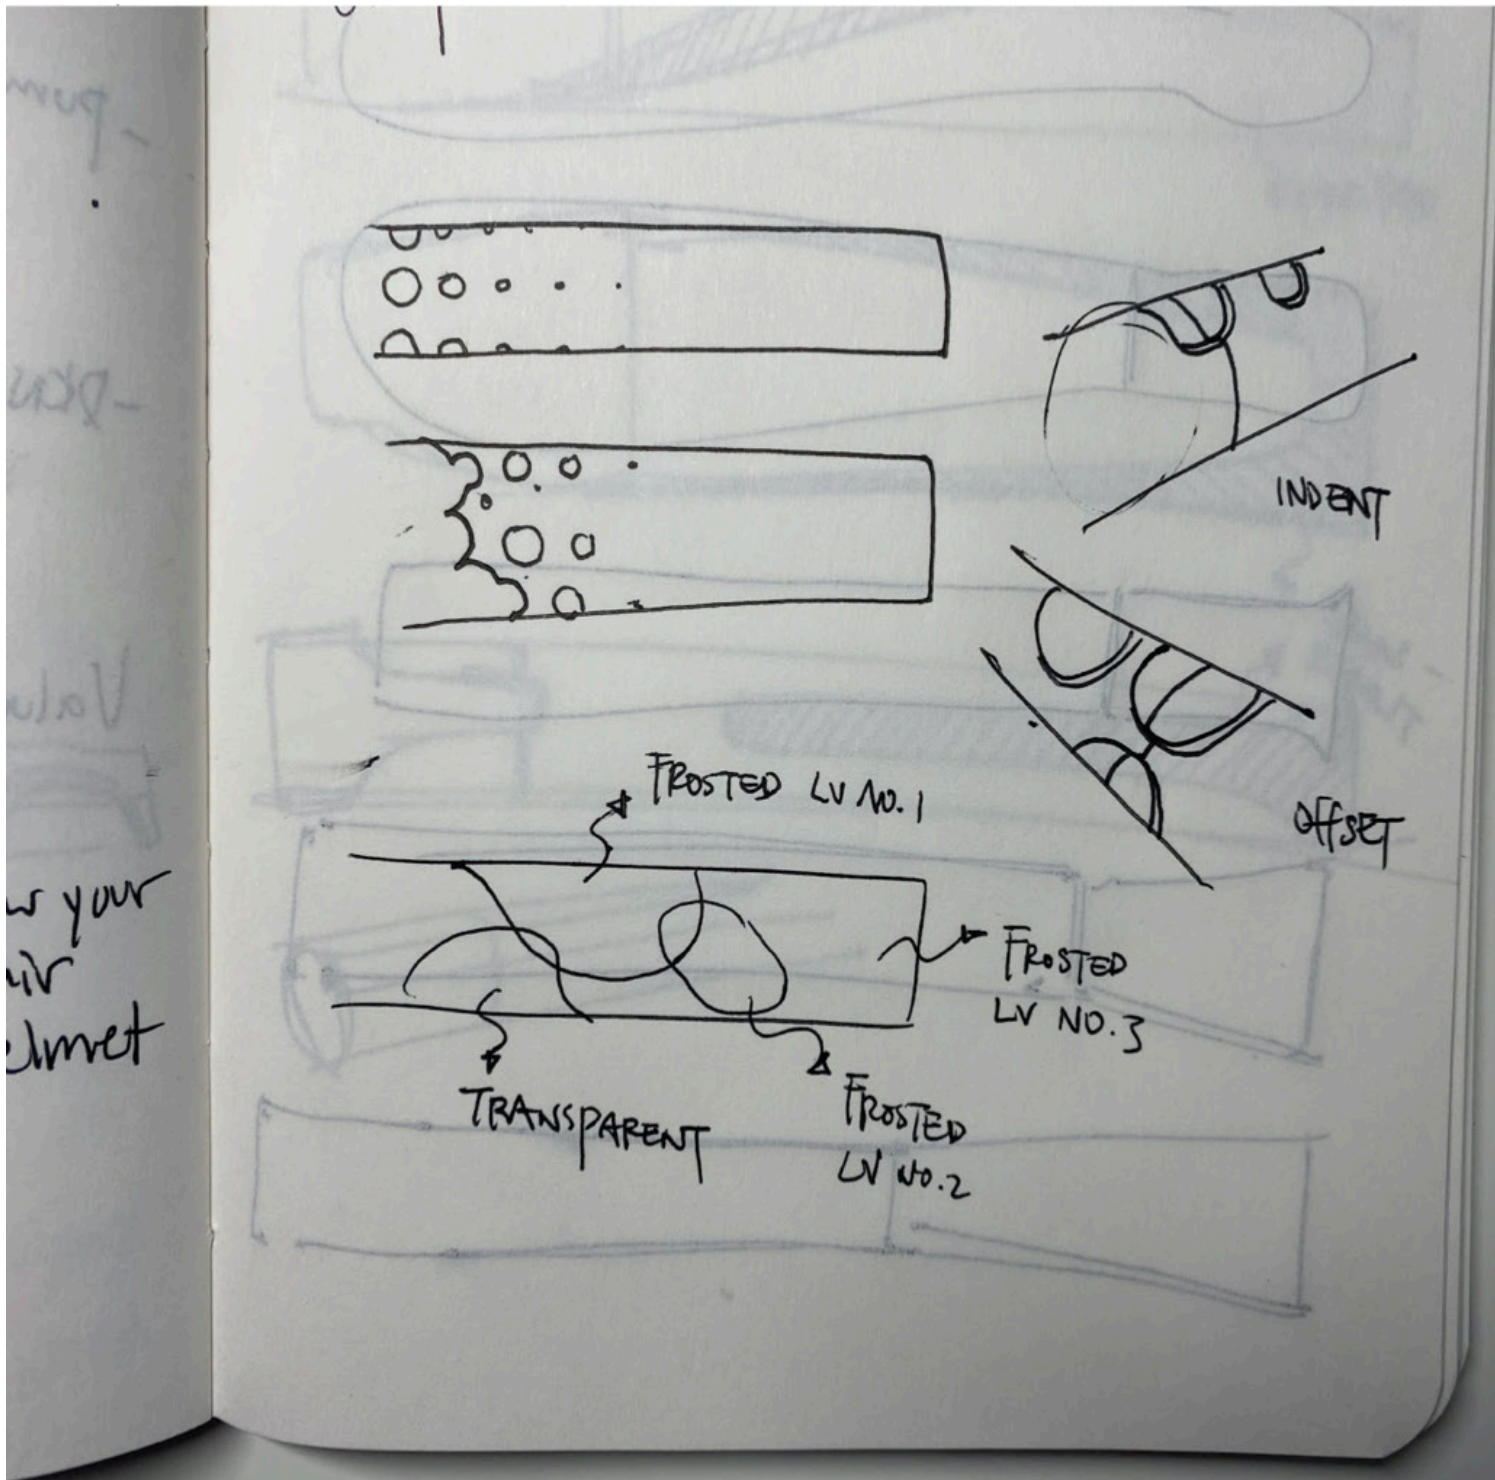 w your
air
elmet
INDENT
OFFSET
FROSTED LV NO.1
FROSTED
LV NO.3
TRANSPARENT
FROSTED
LV NO.2